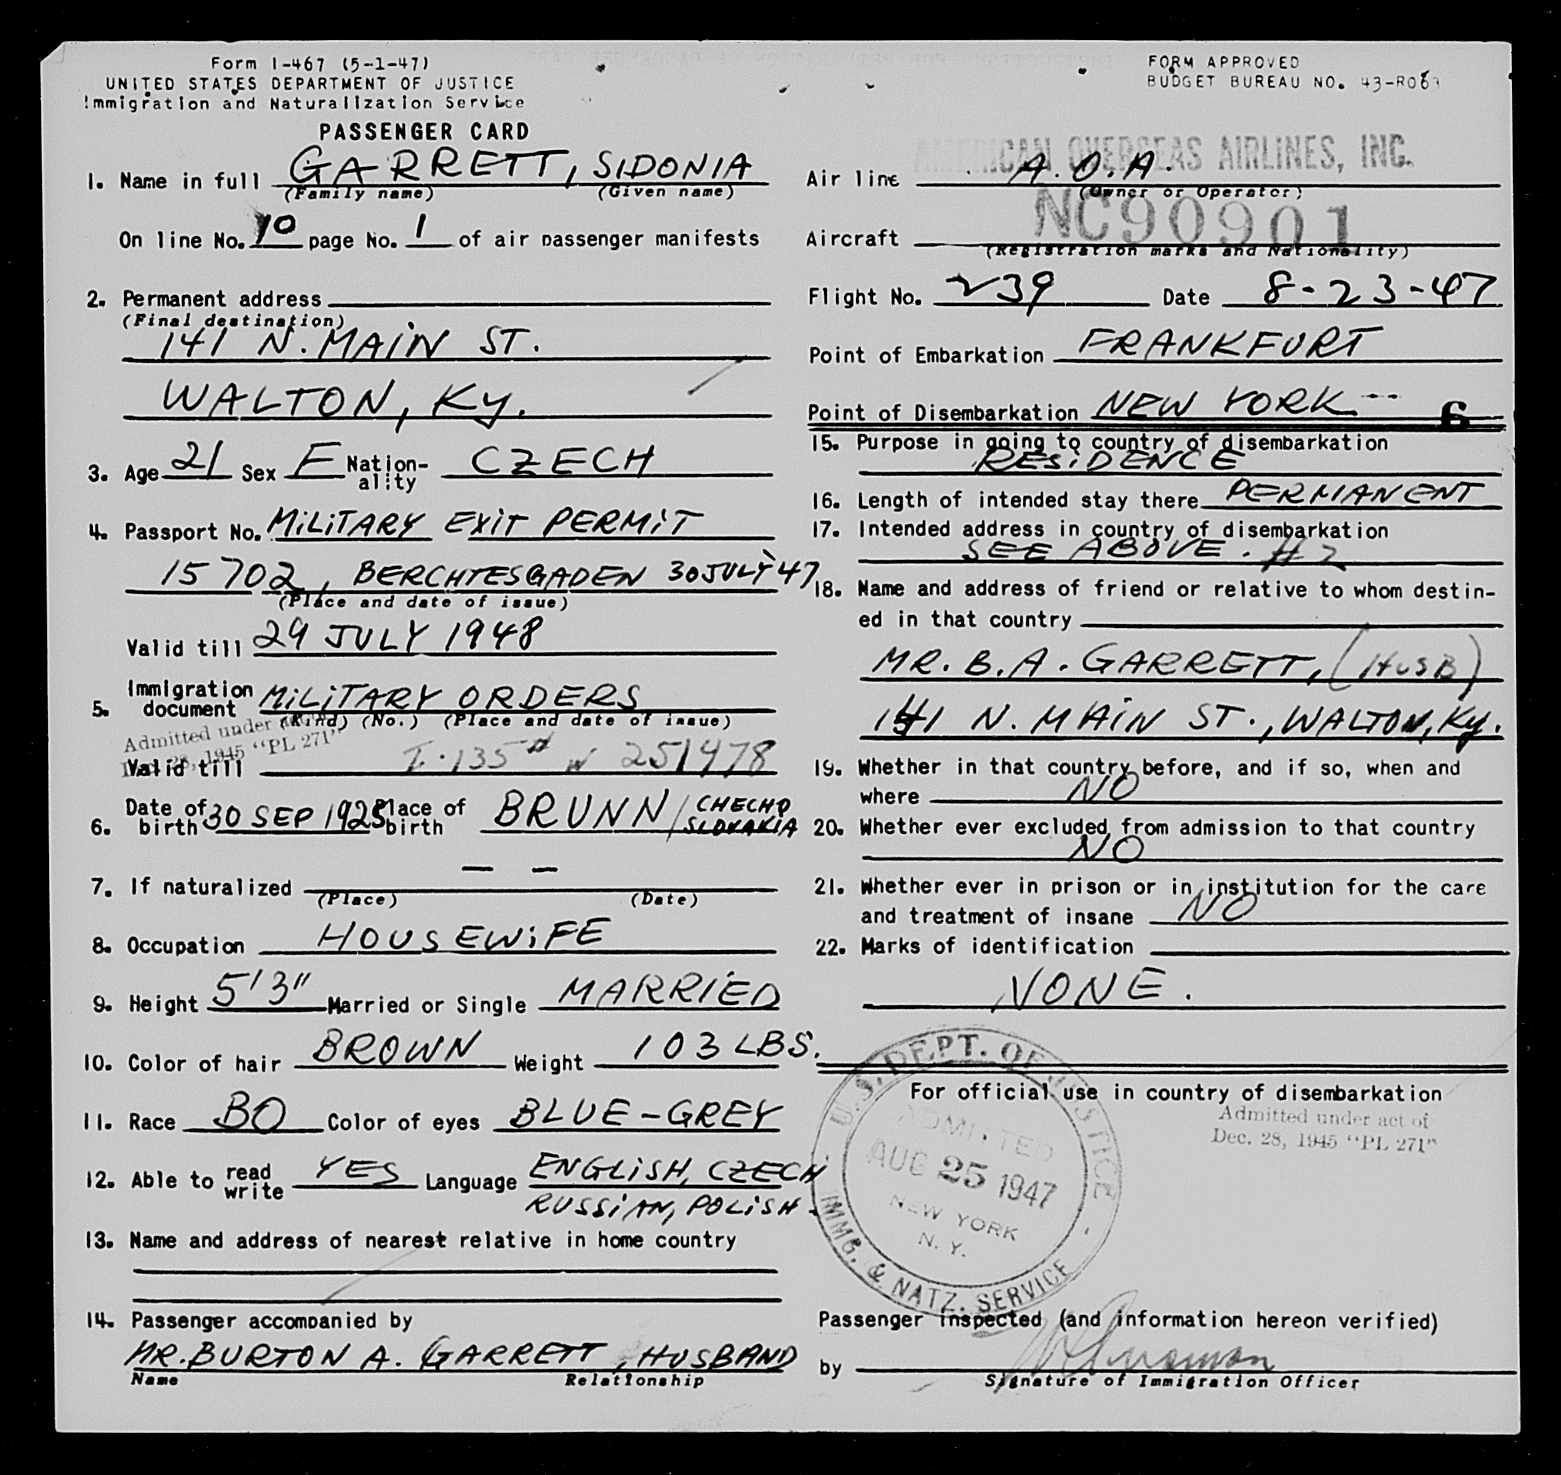 Form I-467 (5-1-47)
UNITED STATES DEPARTMENT OF JUSTICE
Immigration and Naturalization Service
PASSENGER CARD
1. Name in full GARRETT, SIDONIA
(Family name) (Given name)
On line No. 10 page No. 1 of air passenger manifests
2. Permanent address
(Final destination)
141 N. MAIN ST.
WALTON, Ky.
3. Age 21 Sex F Nation-ality CZECH
4. Passport No. MILITARY EXIT PERMIT
15702, BERCHTESGADEN 30 JULY 47
(Place and date of issue)
Valid till 29 JULY 1948
5. Immigration document MILITARY ORDERS
(Kind) (No.) (Place and date of issue)
Admitted under act of
Dec. 28, 1945 "PL 271"
Valid till I-135 # 251478
6. Date of birth 30 SEP 1925 Place of birth BRUNN / CHECHO SLOVAKIA
7. If naturalized — —
(Place) (Date)
8. Occupation HOUSEWIFE
9. Height 5'3" Married or Single MARRIED
10. Color of hair BROWN Weight 103 LBS.
11. Race BO Color of eyes BLUE-GREY
12. Able to read write YES Language ENGLISH, CZECH
RUSSIAN, POLISH.
13. Name and address of nearest relative in home country
14. Passenger accompanied by
MR. BURTON A. GARRETT, HUSBAND
Name Relationship
FORM APPROVED
BUDGET BUREAU NO. 43-R083
AMERICAN OVERSEAS AIRLINES, INC.
Air line A.O.A.
(Owner or Operator)
Aircraft NC90901
(Registration marks and Nationality)
Flight No. 239 Date 8-23-47
Point of Embarkation FRANKFURT
Point of Disembarkation NEW YORK 6
15. Purpose in going to country of disembarkation
RESIDENCE
16. Length of intended stay there PERMANENT
17. Intended address in country of disembarkation
SEE ABOVE. #2
18. Name and address of friend or relative to whom destin-
ed in that country
MR. B.A. GARRETT, (HUSB)
141 N. MAIN ST., WALTON, Ky.
19. Whether in that country before, and if so, when and
where NO
20. Whether ever excluded from admission to that country
NO
21. Whether ever in prison or in institution for the care
and treatment of insane NO
22. Marks of identification
NONE.
For official use in country of disembarkation
Admitted under act of
Dec. 28, 1945 "PL 271"
U.S. DEPT. OF JUSTICE
ADMITTED
AUG 25 1947
NEW YORK
N.Y.
IMMG. & NATZ. SERVICE
Passenger inspected (and information hereon verified)
by
Signature of Immigration Officer